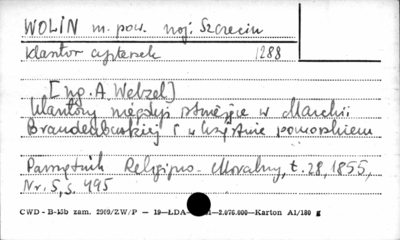 WOLIN m. pow. woj. Szczecin
klasztor cysterek 1288
[Np. A. Wetzel]
Klasztory niegdyś istniejące w Marchii
Brandenburskiej i w Księstwie pomorskiem
Pamiętnik Religijno-Moralny, t. 28, 1855,
Nr. 5, s. 495
CWD - B-15b zam. 2009/ZW/P — 19—ŁDA- 51—2.076.000—Karton A1/180 g